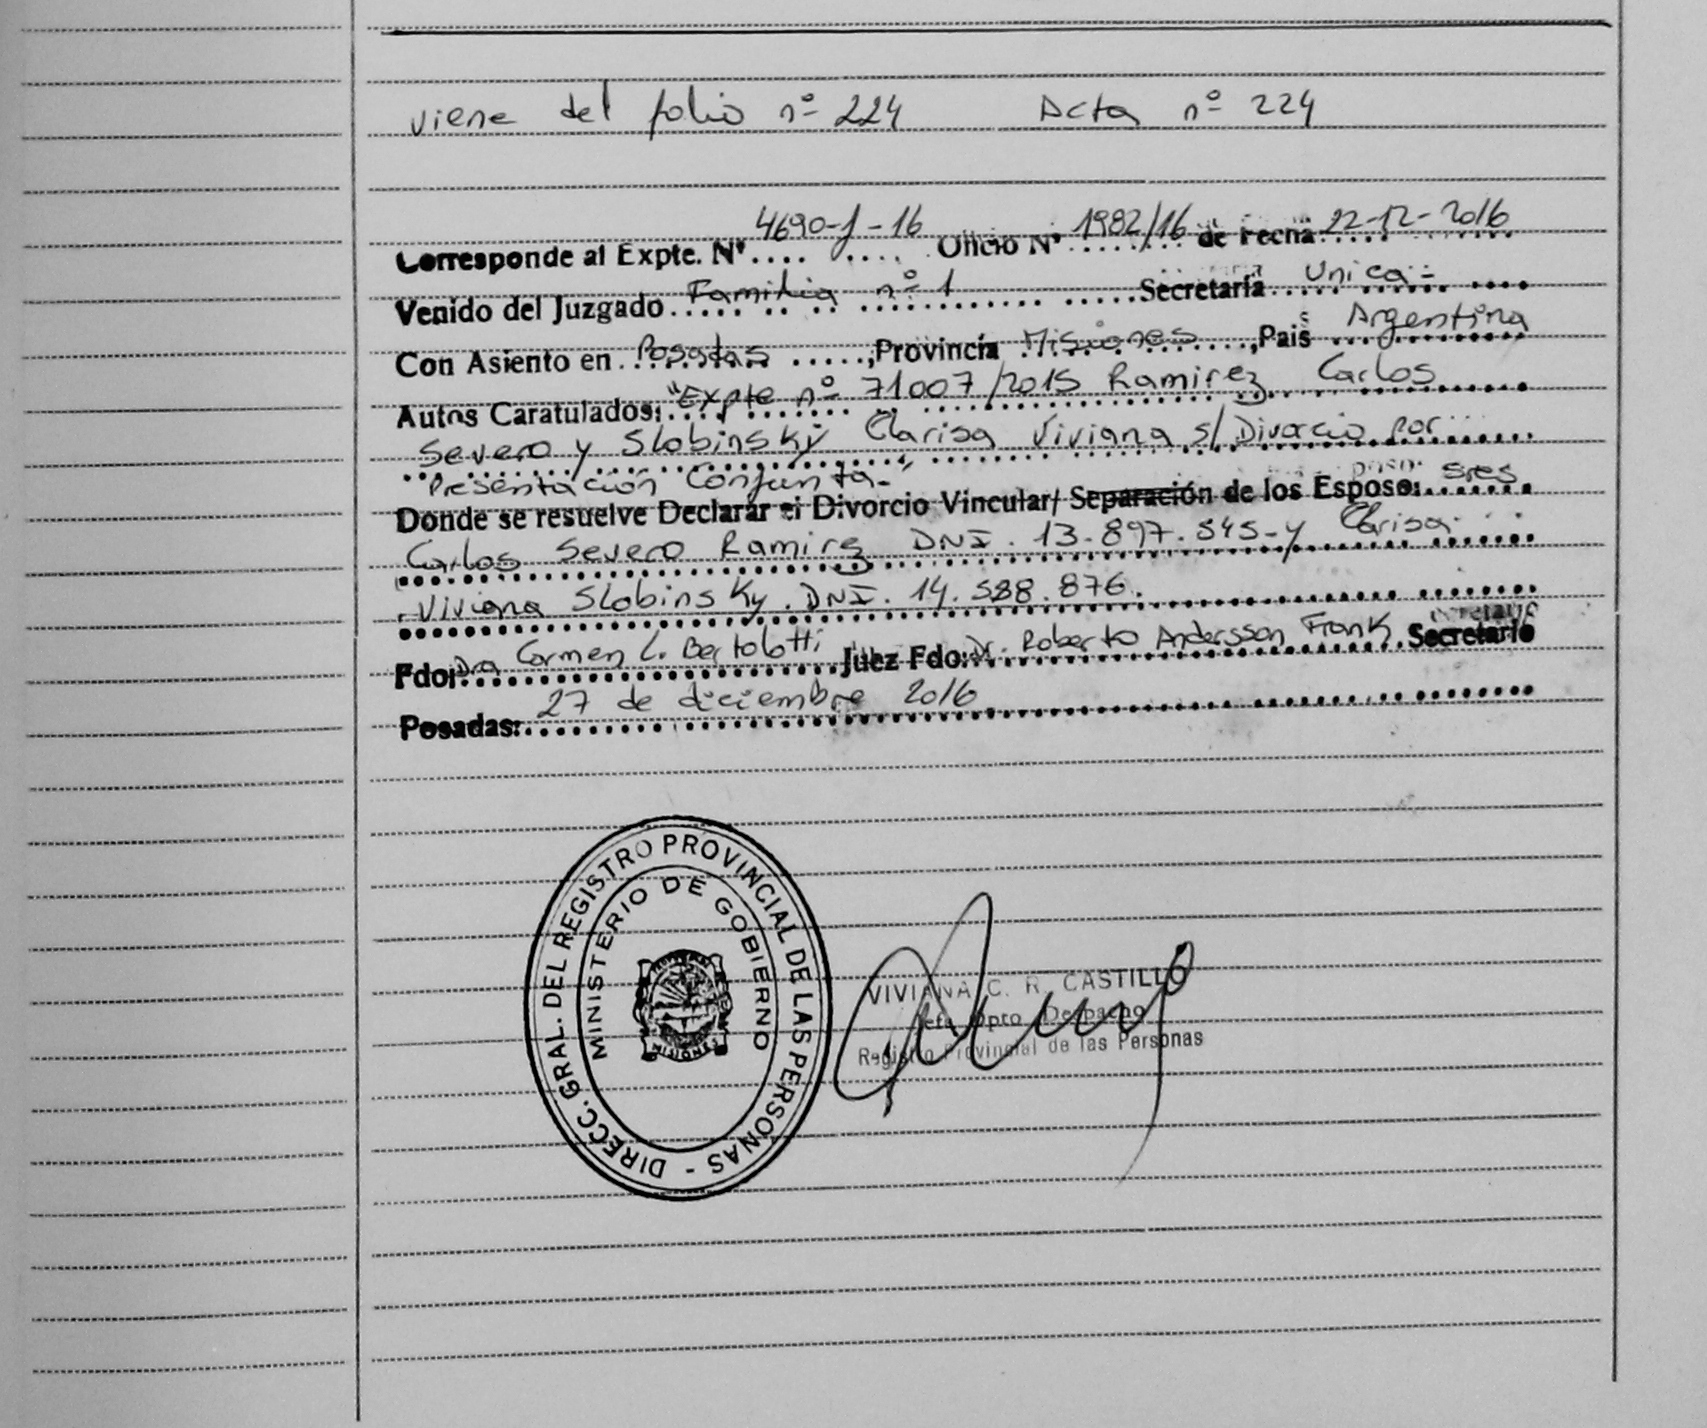 viene del folio nº 224 Acta nº 224
Corresponde al Expte. Nº 4690-J-16 Oficio Nº 1982/16 de Fecha 22-12-2016
Venido del Juzgado Familia nº 1 Secretaría Unica-
Con Asiento en Posadas, Provincia Misiones, País Argentina
Autos Caratulados: "Expte nº 71007/2015 Ramirez Carlos
Severo y Slobinsky Clarisa Viviana s/ Divorcio por
Presentación Conjunta-
Donde se resuelve Declarar el Divorcio Vincular/ Separación de los Esposo: sres
Carlos Severo Ramirez DNI. 13.897.545-y Clarisa
Viviana Slobinsky. DNI. 14.588.876.
Fdo: Dra Carmen L. Bertolotti Juez Fdo: Dr. Roberto Andersson Frank. Secretario
Posadas: 27 de diciembre 2016
DIRECC. GRAL. DEL REGISTRO PROVINCIAL DE LAS PERSONAS -
MINISTERIO DE GOBIERNO
MISIONES
VIVIANA C. R. CASTILLO
Jefe Dpto. Despacho
Registro Provincial de las Personas